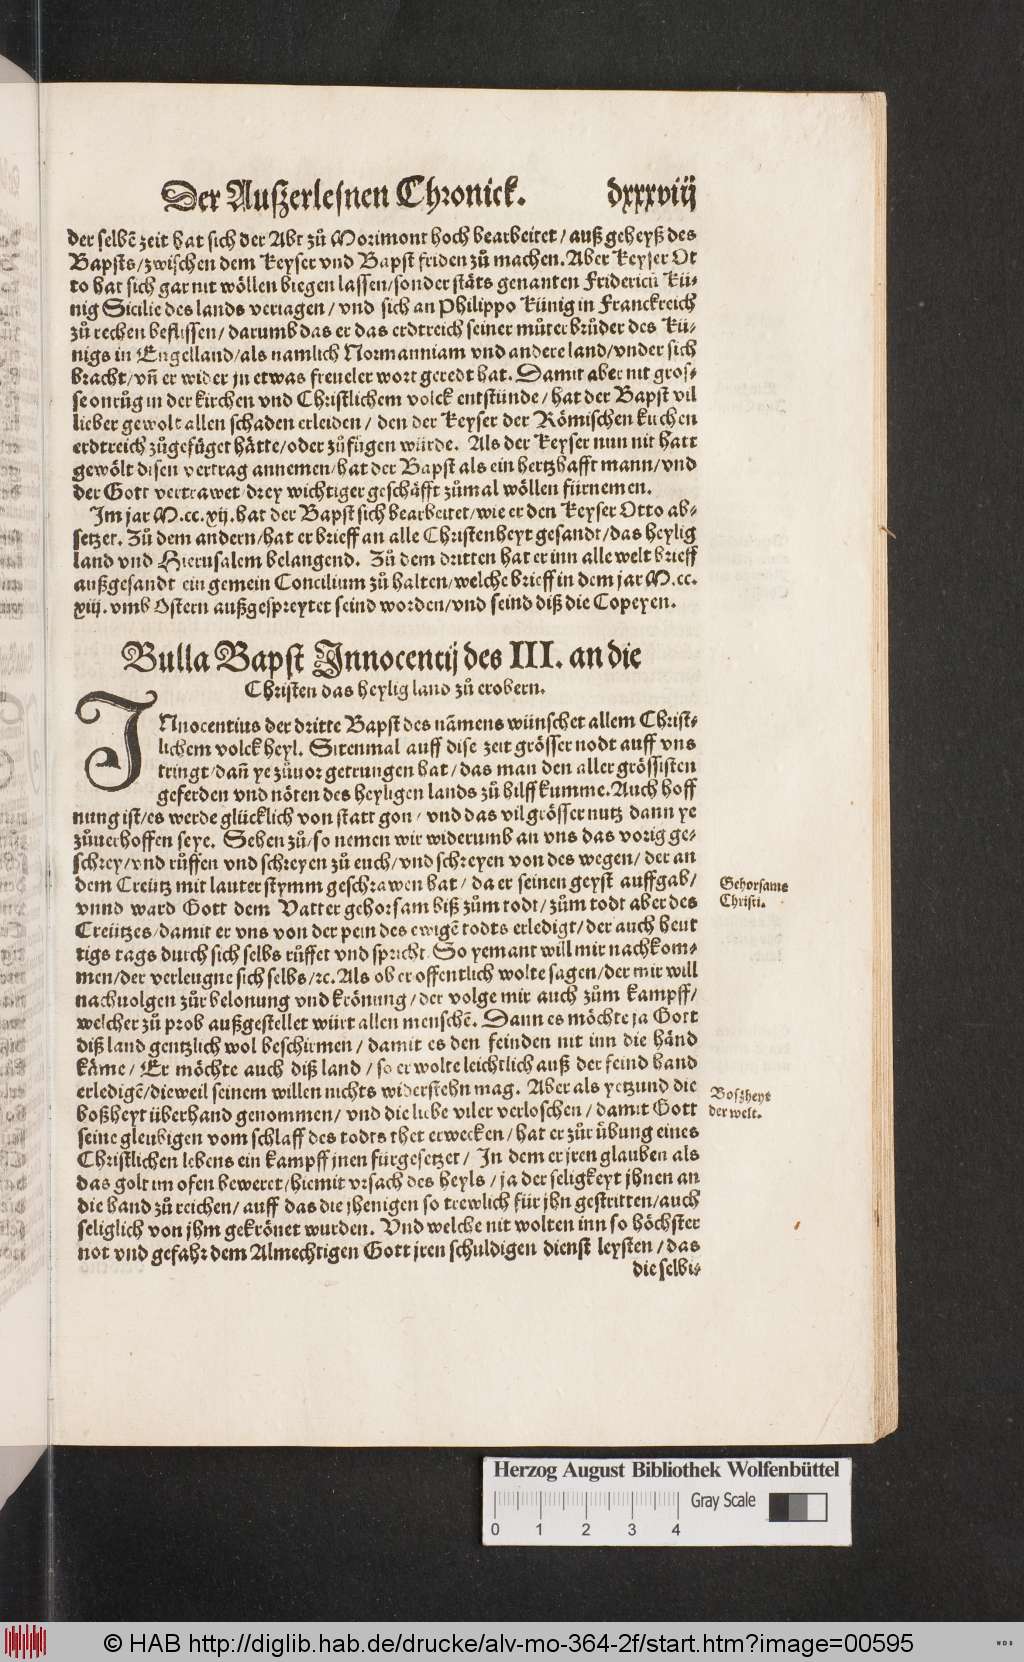 Der Außerlesnen Chronick. dxxxviij
der selbẽ zeit hat sich der Abt zů Morimont hoch bearbeitet / auß geheyß des
Bapsts / zwischen dem Keyser vnd Bapst friden zů machen. Aber Keyser Ot
to hat sich gar nit wöllen biegen lassen / sonder stäts genanten Fridericũ Kü-
nig Sicilie des lands veriagen / vnd sich an Philippo Künig in Franckreich
zů rechen beflissen / darumb das er das erdtreich seiner můterbrůder des Kü-
nigs in Engelland / als namlich Normanniam vnd andere land / vnder sich
bracht / vñ er wider jn etwas freueler wort geredt hat. Damit aber nit gros-
se onrůg in der kirchen vnd Christlichem volck entstünde / hat der Bapst vil
lieber gewolt allen schaden erleiden / den der Keyser der Römischen kirchen
erdtreich zůgefüget hätte / oder zůfügen würde. Als der Keyser nun nit hatt
gewölt disen vertrag annemen / hat der Bapst als ein hertzhafft mann / vnd
der Gott vertrawet / drey wichtiger geschäfft zůmal wöllen fürnemen.
Im jar M.cc.xij. hat der Bapst sich bearbeitet / wie er den Keyser Otto ab-
setzet. Zů dem andern / hat er brieff an alle Christenheyt gesandt / das heylig
land vnd Hierusalem belangend. Zů dem dritten hat er inn alle welt brieff
außgesandt ein gemein Concilium zů halten / welche brieff in dem jar M.cc.
xiij. vmb Ostern außgespreytet seind worden / vnd seind diß die Copeyen.
Bulla Bapst Innocentij des III. an die
Christen das heylig land zů erobern.
INnocentius der dritte Bapst des nãmens wünschet allem Christ-
lichem volck heyl. Sitenmal auff dise zeit grösser nodt auff vns
tringt / dañ ye zůuor getrungen hat / das man den aller grössisten
geferden vnd nöten des heyligen lands zů hilff kumme. Auch hoff
nung ist / es werde glücklich von statt gon / vnd das vil grösser nutz dann ye
zůuerhoffen seye. Sehen zů / so nemen wir widerumb an vns das vorig ge-
schrey / vnd růffen vnd schreyen zů euch / vnd schreyen von des wegen / der an
dem Creütz mit lauter stymm geschrawen hat / da er seinen geyst auffgab /
vnnd ward Gott dem Vatter gehorsam biß zům todt / zům todt aber des
Creützes / damit er vns von der pein des ewigẽ todts erledigt / der auch heut
tigs tags durch sich selbs růffet vnd spricht. So yemant will mir nachkom-
men / der verleugne sich selbs / ꝛc. Als ob er offentlich wolte sagen / der mir will
nachuolgen zůr belonung vnd krönung / der volge mir auch zům kampff /
welcher zů prob außgestellet würt allen menschẽ. Dann es möchte ja Gott
diß land gentzlich wol beschirmen / damit es den feinden nit inn die händ
käme / Er möchte auch diß land / so er wolte leichtlich auß der feind hand
erledigẽ / dieweil seinem willen nichts widerstehn mag. Aber als yetzund die
boßheyt überhand genommen / vnd die liebe viler verloschen / damit Gott
seine gleubigen vom schlaff des todts thet erwecken / hat er zůr übung eines
Christlichen lebens ein kampff jnen fürgesetzet / In dem er jren glauben als
das golt im ofen beweret / hiemit vrsach des heyls / ja der seligkeyt jhnen an
die hand zů reichen / auff das die jhenigen so trewlich für jhn gestritten / auch
seliglich von jhm gekrönet wurden. Vnd welche nit wolten inn so höchster
not vnd gefahr dem Almechtigen Gott jren schuldigen dienst leysten / das
die selbi-
Gehorsame
Christi.
Boßheyt
der welt.
Herzog August Bibliothek Wolfenbüttel
Gray Scale
0 1 2 3 4
© HAB http://diglib.hab.de/drucke/alv-mo-364-2f/start.htm?image=00595